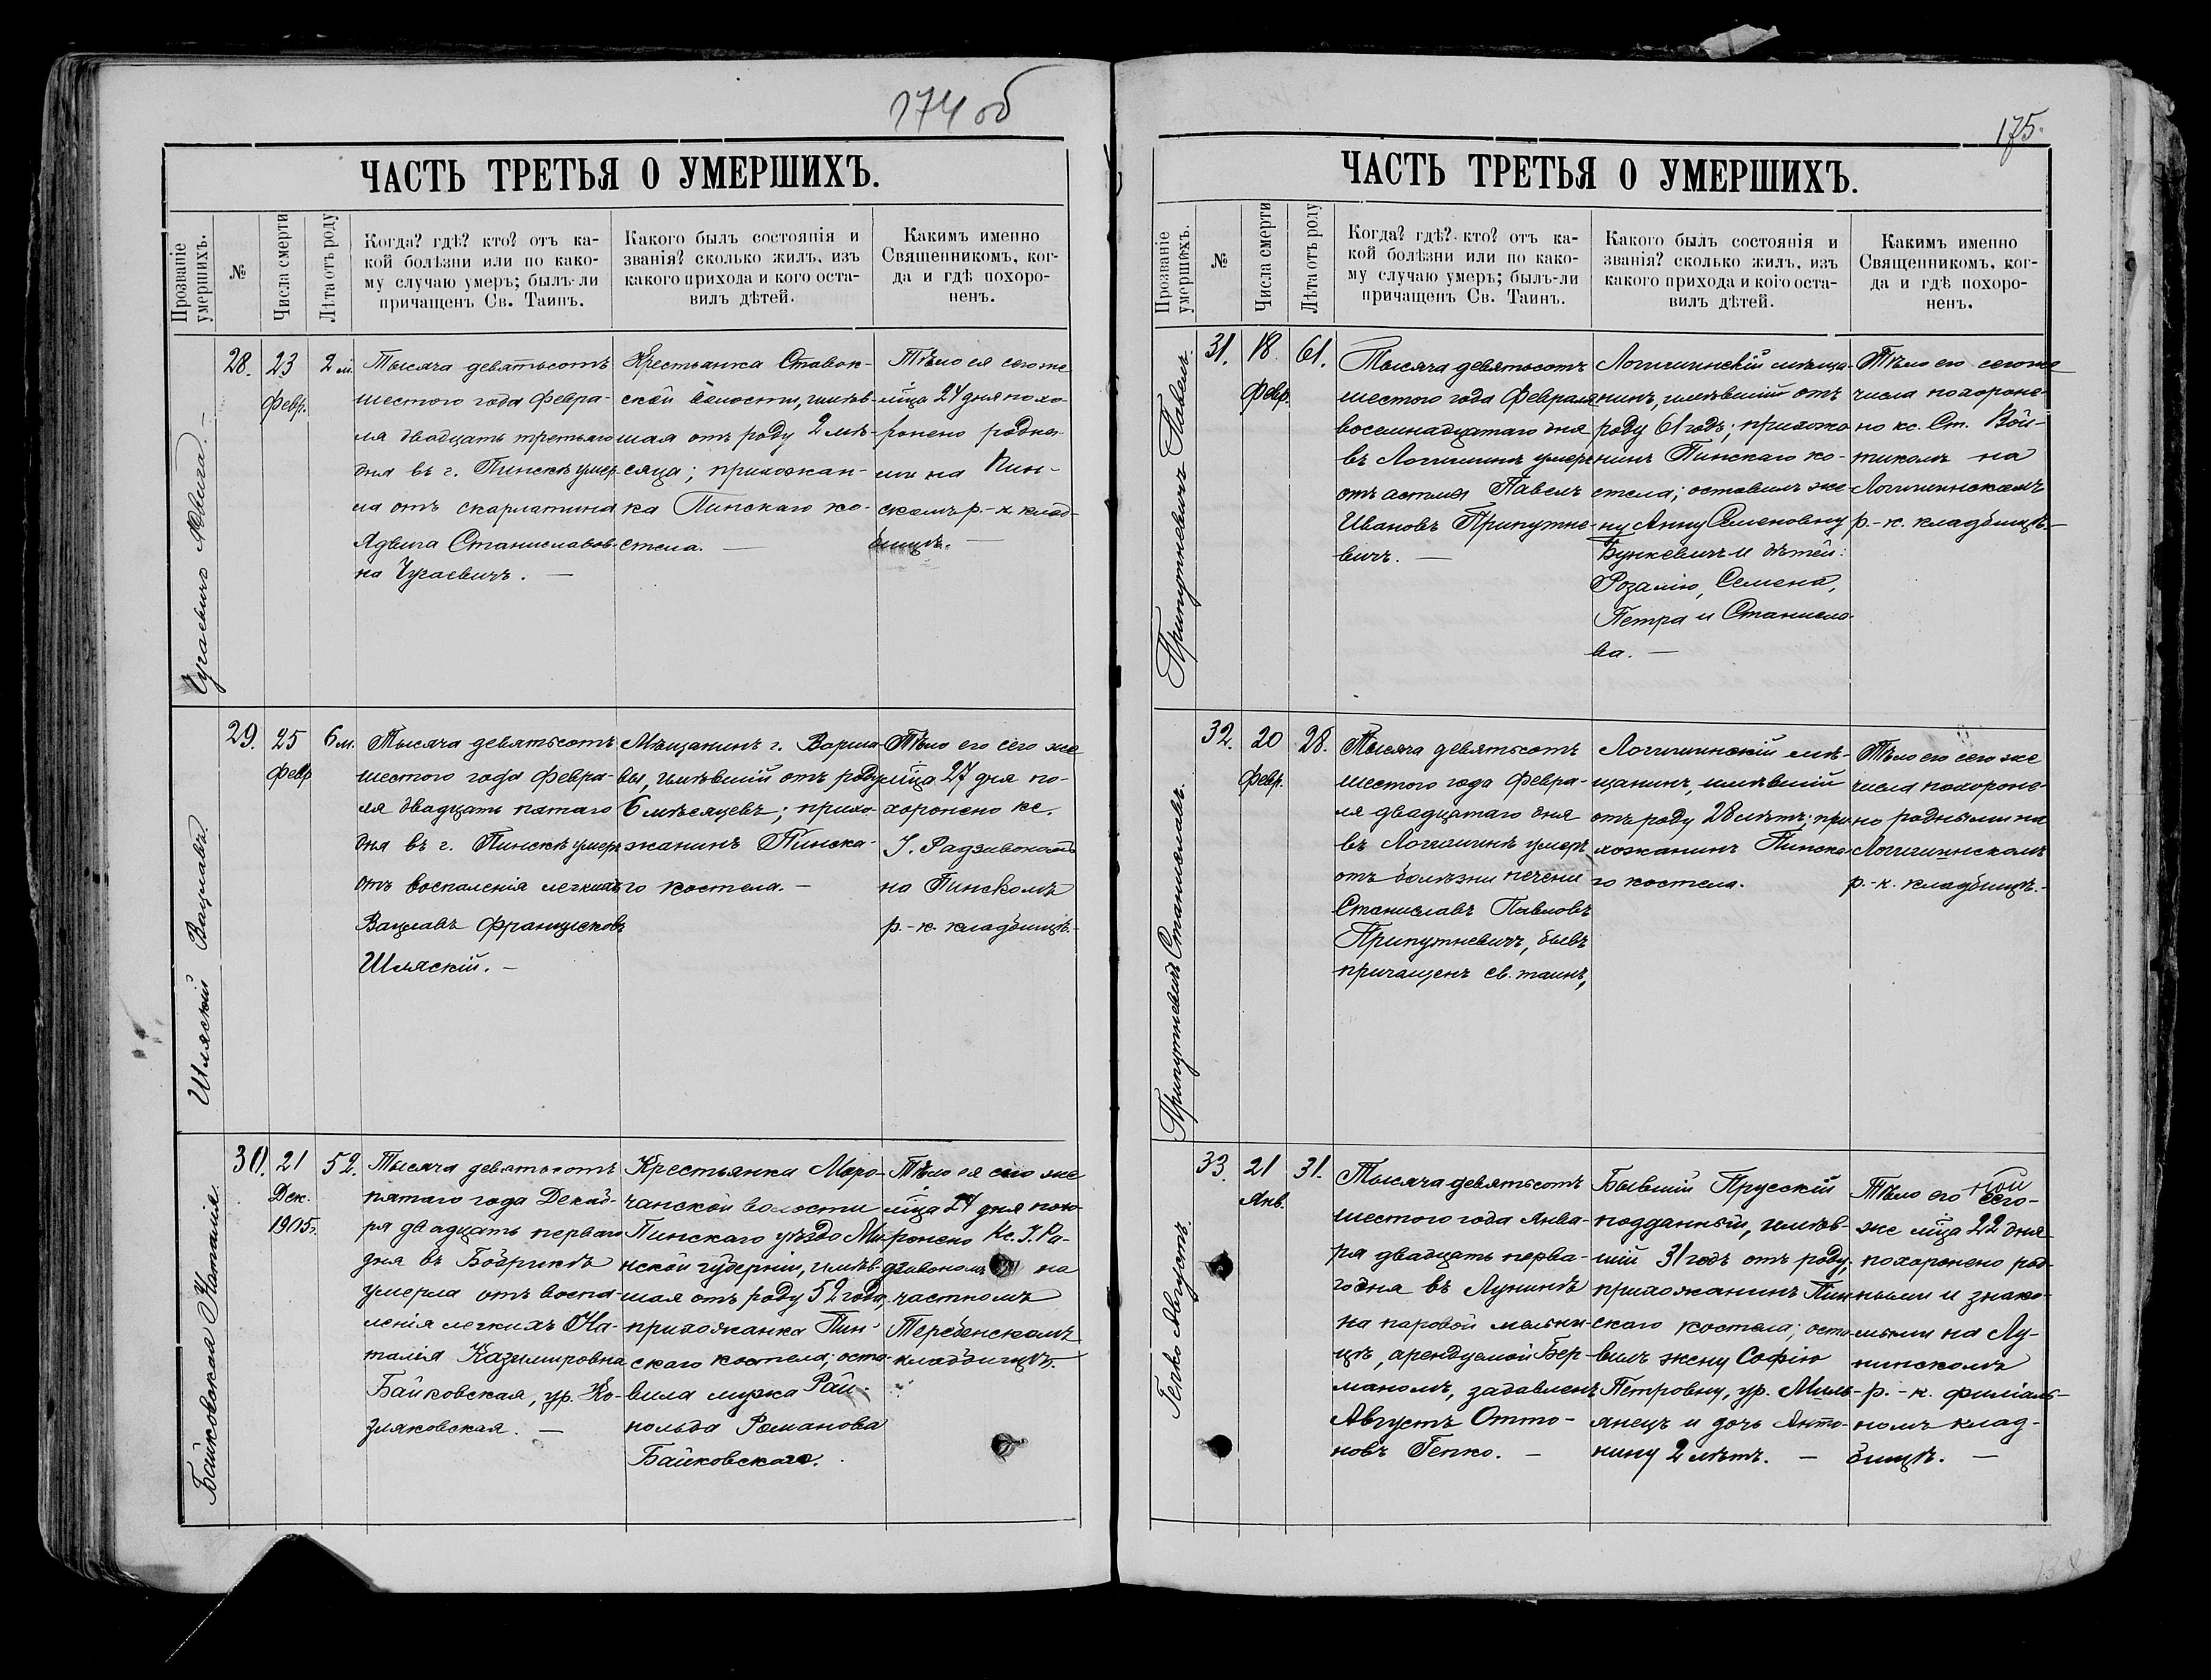 174 об
ЧАСТЬ ТРЕТЬЯ О УМЕРШИХЪ.
Прозваніе
умершихъ.
№
Числа смерти
Лѣта отъ роду
Когда? гдѣ? кто? отъ ка-
кой болѣзни или по како-
му случаю умеръ; былъ-ли
причащенъ Св. Таинъ.
Какого былъ состоянія и
званія? сколько жилъ, изъ
какого прихода и кого оста-
вилъ дѣтей.
Какимъ именно
Священникомъ, ког-
да и гдѣ похоро-
ненъ.
Чугаевичъ Ядвига. —
28.
23
Февр.
2 м.
Тысяча девятьсотъ
шестого года Февра-
ля двадцать третьяго
дня въ г. Пинскѣ умер-
ла отъ скарлатина
Ядвига Станиславов-
на Чугаевичъ. —
Крестьянка Ставок-
ской волости, имѣв-
шая отъ роду 2 мѣ-
сяца; прихожан-
ка Пинскаго ко-
стела. —
Тѣло ея сего же
мѣца 24 дня похо-
ронено родны-
ми на Пин-
скомъ р.-к. клад-
бищѣ. —
Шляскій Вацлавъ.
29.
25
Февр
6 м.
Тысяча девятьсотъ
шестого года Февра-
ля двадцать пятаго
дня въ г. Пинскѣ умеръ
отъ воспаленія легкихъ
Вацлавъ Францисковъ
Шляскій. —
Мѣщанинъ г. Варша-
вы, имѣвшій отъ роду
6 мѣсяцевъ; прихо-
жанинъ Пинска-
го костела. —
Тѣло его сего же
мѣца 27 дня по-
хоронено кс.
І. Радзивономъ
на Пинскомъ
р.-к. кладбищѣ.-
Байковская Наталія.
30.
21
Дек.
1905г.
52.
Тысяча девятьсотъ
пятаго года Декаб-
ря двадцать перваго
дня въ Бобрикѣ
умерла отъ воспа-
ленія легкихъ На-
талія Казимировна
Байковская, ур. Ко-
зляковская. —
Крестьянка Моро-
чанской волости
Пинскаго уѣзда Ми-
нской губерніи, имѣв-
шая отъ роду 52 года,
прихожанка Пин-
скаго костела; оста-
вила мужа Рай-
нольда Романова
Байковскаго.
Тѣло ея сего же
мѣца 27 дня похо-
ронено Кс. І. Ра-
дзивономъ на
частномъ
Теребенскомъ
кладбищѣ.
175.
ЧАСТЬ ТРЕТЬЯ О УМЕРШИХЪ.
Прозваніе
умершихъ.
№
Числа смерти
Лѣта отъ роду
Когда? гдѣ? кто? отъ ка-
кой болѣзни или по како-
му случаю умеръ; былъ-ли
причащенъ Св. Таинъ.
Какого былъ состоянія и
званія? сколько жилъ, изъ
какого прихода и кого оста-
вилъ дѣтей.
Какимъ именно
Священникомъ, ког-
да и гдѣ похоро-
ненъ.
Припутневичъ Павелъ.
31.
18.
Февр.
61.
Тысяча девятьсотъ
шестого года Февраля
восемнадцатаго дня
въ Логишинѣ умеръ
отъ астмы Павелъ
Ивановъ Припутне-
вичъ. —
Логишинскій мѣща-
нинъ, имѣвшій отъ
роду 61 годъ; прихожа-
нинъ Пинскаго ко-
стела; оставилъ же-
ну Анну Семеновну
Бункевичъ и дѣтей:
Розалію, Семена,
Петра и Станисла-
ва. —
Тѣло его сего же
числа похороне-
но кс. Ст. Вой-
тикомъ на
Логишинскомъ
р.-к. кладбищѣ.—
Припутневичъ Станиславъ.
32.
20
Февр.
28.
Тысяча девятьсотъ
шестого года Февра-
ля двадцатаго дня
въ Логишинѣ умеръ
отъ болѣзни печени
Станиславъ Павловъ
Припутневичъ, бывъ
причащенъ св. таинъ,
Логишинскій мѣ-
щанинъ, имѣвшій
отъ роду 28 лѣтъ; при-
хожанинъ Пинска-
го костела.
Тѣло его сего же
числа похороне-
но родными на
Логишинскомъ
р.-к. кладбищѣ.-
Гепко Августъ.
33.
21
Янв.
31.
Тысяча девятьсотъ
шестого года Янва-
ря двадцать перва-
го дня въ Лунинѣ
на паровой мельни-
цѣ, арендуемой Бер-
маномъ, задавленъ
Августъ Отто-
новъ Гепко. —
Бывшій Прусскій
подданный, имѣв-
шій 31 годъ отъ роду,
прихожанинъ Пин-
скаго костела; оста-
вилъ жену Софію
Петровну, ур. Миль-
янецъ и дочь Анто-
нину 2 лѣтъ. —
Тѣло его сего-
же мѣца 22 дня
похоронено род-
ными и знако-
мыми на Лу-
нинскомъ
р.-к. филіаль-
номъ клад-
бищѣ. —